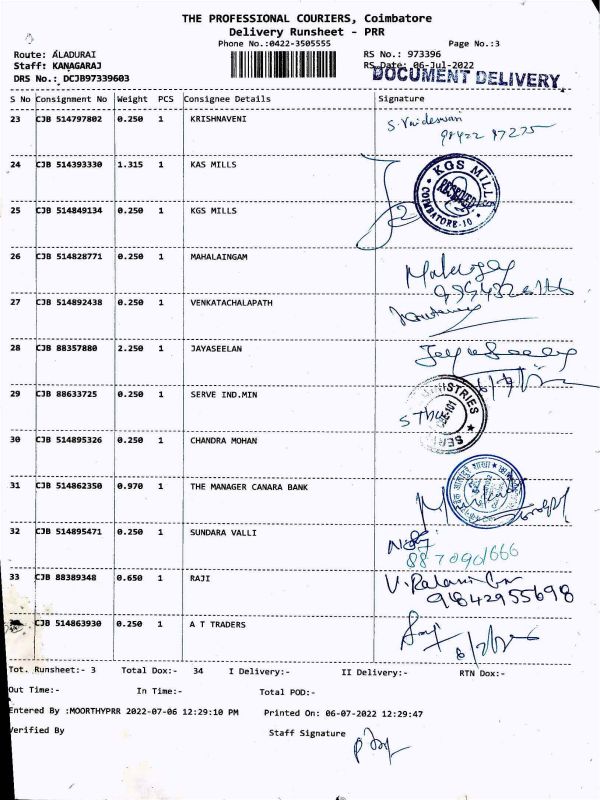 THE PROFESSIONAL COURIERS, Coimbatore
Delivery Runsheet - PRR
Phone No.:0422-3505555 Page No.:3
Route: ALADURAI RS No.: 973396
Staff: KANAGARAJ RS Date: 06-Jul-2022
DRS No.: DCJB97339603 DOCUMENT DELIVERY
S No Consignment No Weight PCS Consignee Details Signature
23 CJB 514797802 0.250 1 KRISHNAVENI
S. Vaideswari
24 CJB 514393330 1.315 1 KAS MILLS
KGS MILLS
RECEIVED
COIMBATORE-10
25 CJB 514849134 0.250 1 KGS MILLS
26 CJB 514828771 0.250 1 MAHALAINGAM
27 CJB 514892438 0.250 1 VENKATACHALAPATH
28 CJB 88357880 2.250 1 JAYASEELAN
29 CJB 88633725 0.250 1 SERVE IND.MIN
MINISTRIES
30 CJB 514895326 0.250 1 CHANDRA MOHAN
31 CJB 514862350 0.970 1 THE MANAGER CANARA BANK
32 CJB 514895471 0.250 1 SUNDARA VALLI
8870901666
33 CJB 88389348 0.650 1 RAJI
9842955698
CJB 514863930 0.250 1 A T TRADERS
Tot. Runsheet:- 3 Total Dox:- 34 I Delivery:- II Delivery:- RTN Dox:-
Out Time:- In Time:- Total POD:-
Entered By :MOORTHYPRR 2022-07-06 12:29:10 PM Printed On: 06-07-2022 12:29:47
Verified By Staff Signature